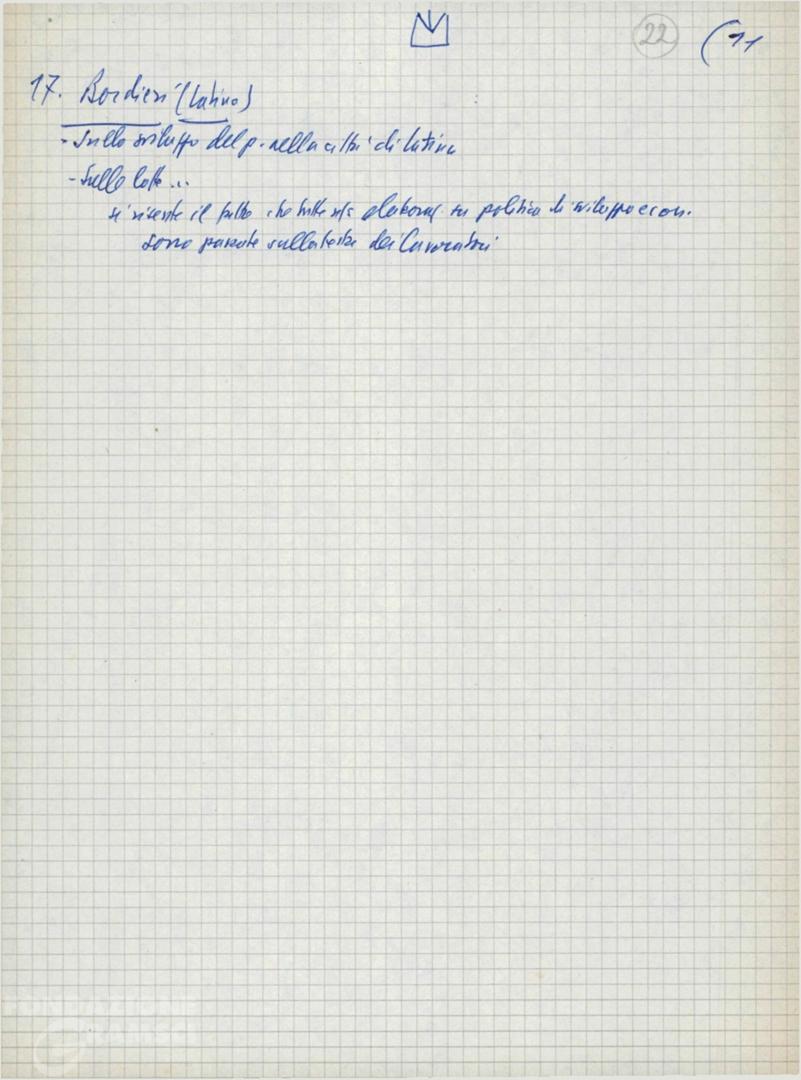 22 (11
17. Bordieri (Latina)
- Sullo sviluppo del p. nella città di Latina
- Sulle lotte...
si risente il fatto che tutte elaboraz. su politica di sviluppo econ.
sono passate sulla testa dei lavoratori
FONDAZIONE
GRAMSCI